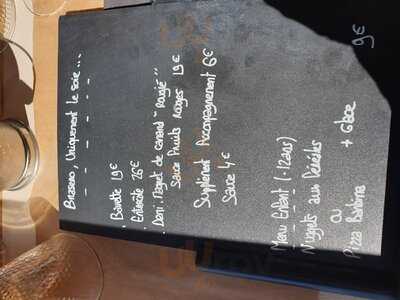 Brasero, Uniquement le soir...
- - - - -
. Bavette 19€
. Entrecôte 26€
. Demi. Magret de canard "Rougié"
Sauce fruits rouges 19€
Supplément Accompagnement 6€
Sauce 4€
Menu Enfant (-12ans)
Nuggets aux Céréales
ou
Pizza Bambina
+ Glace
9€